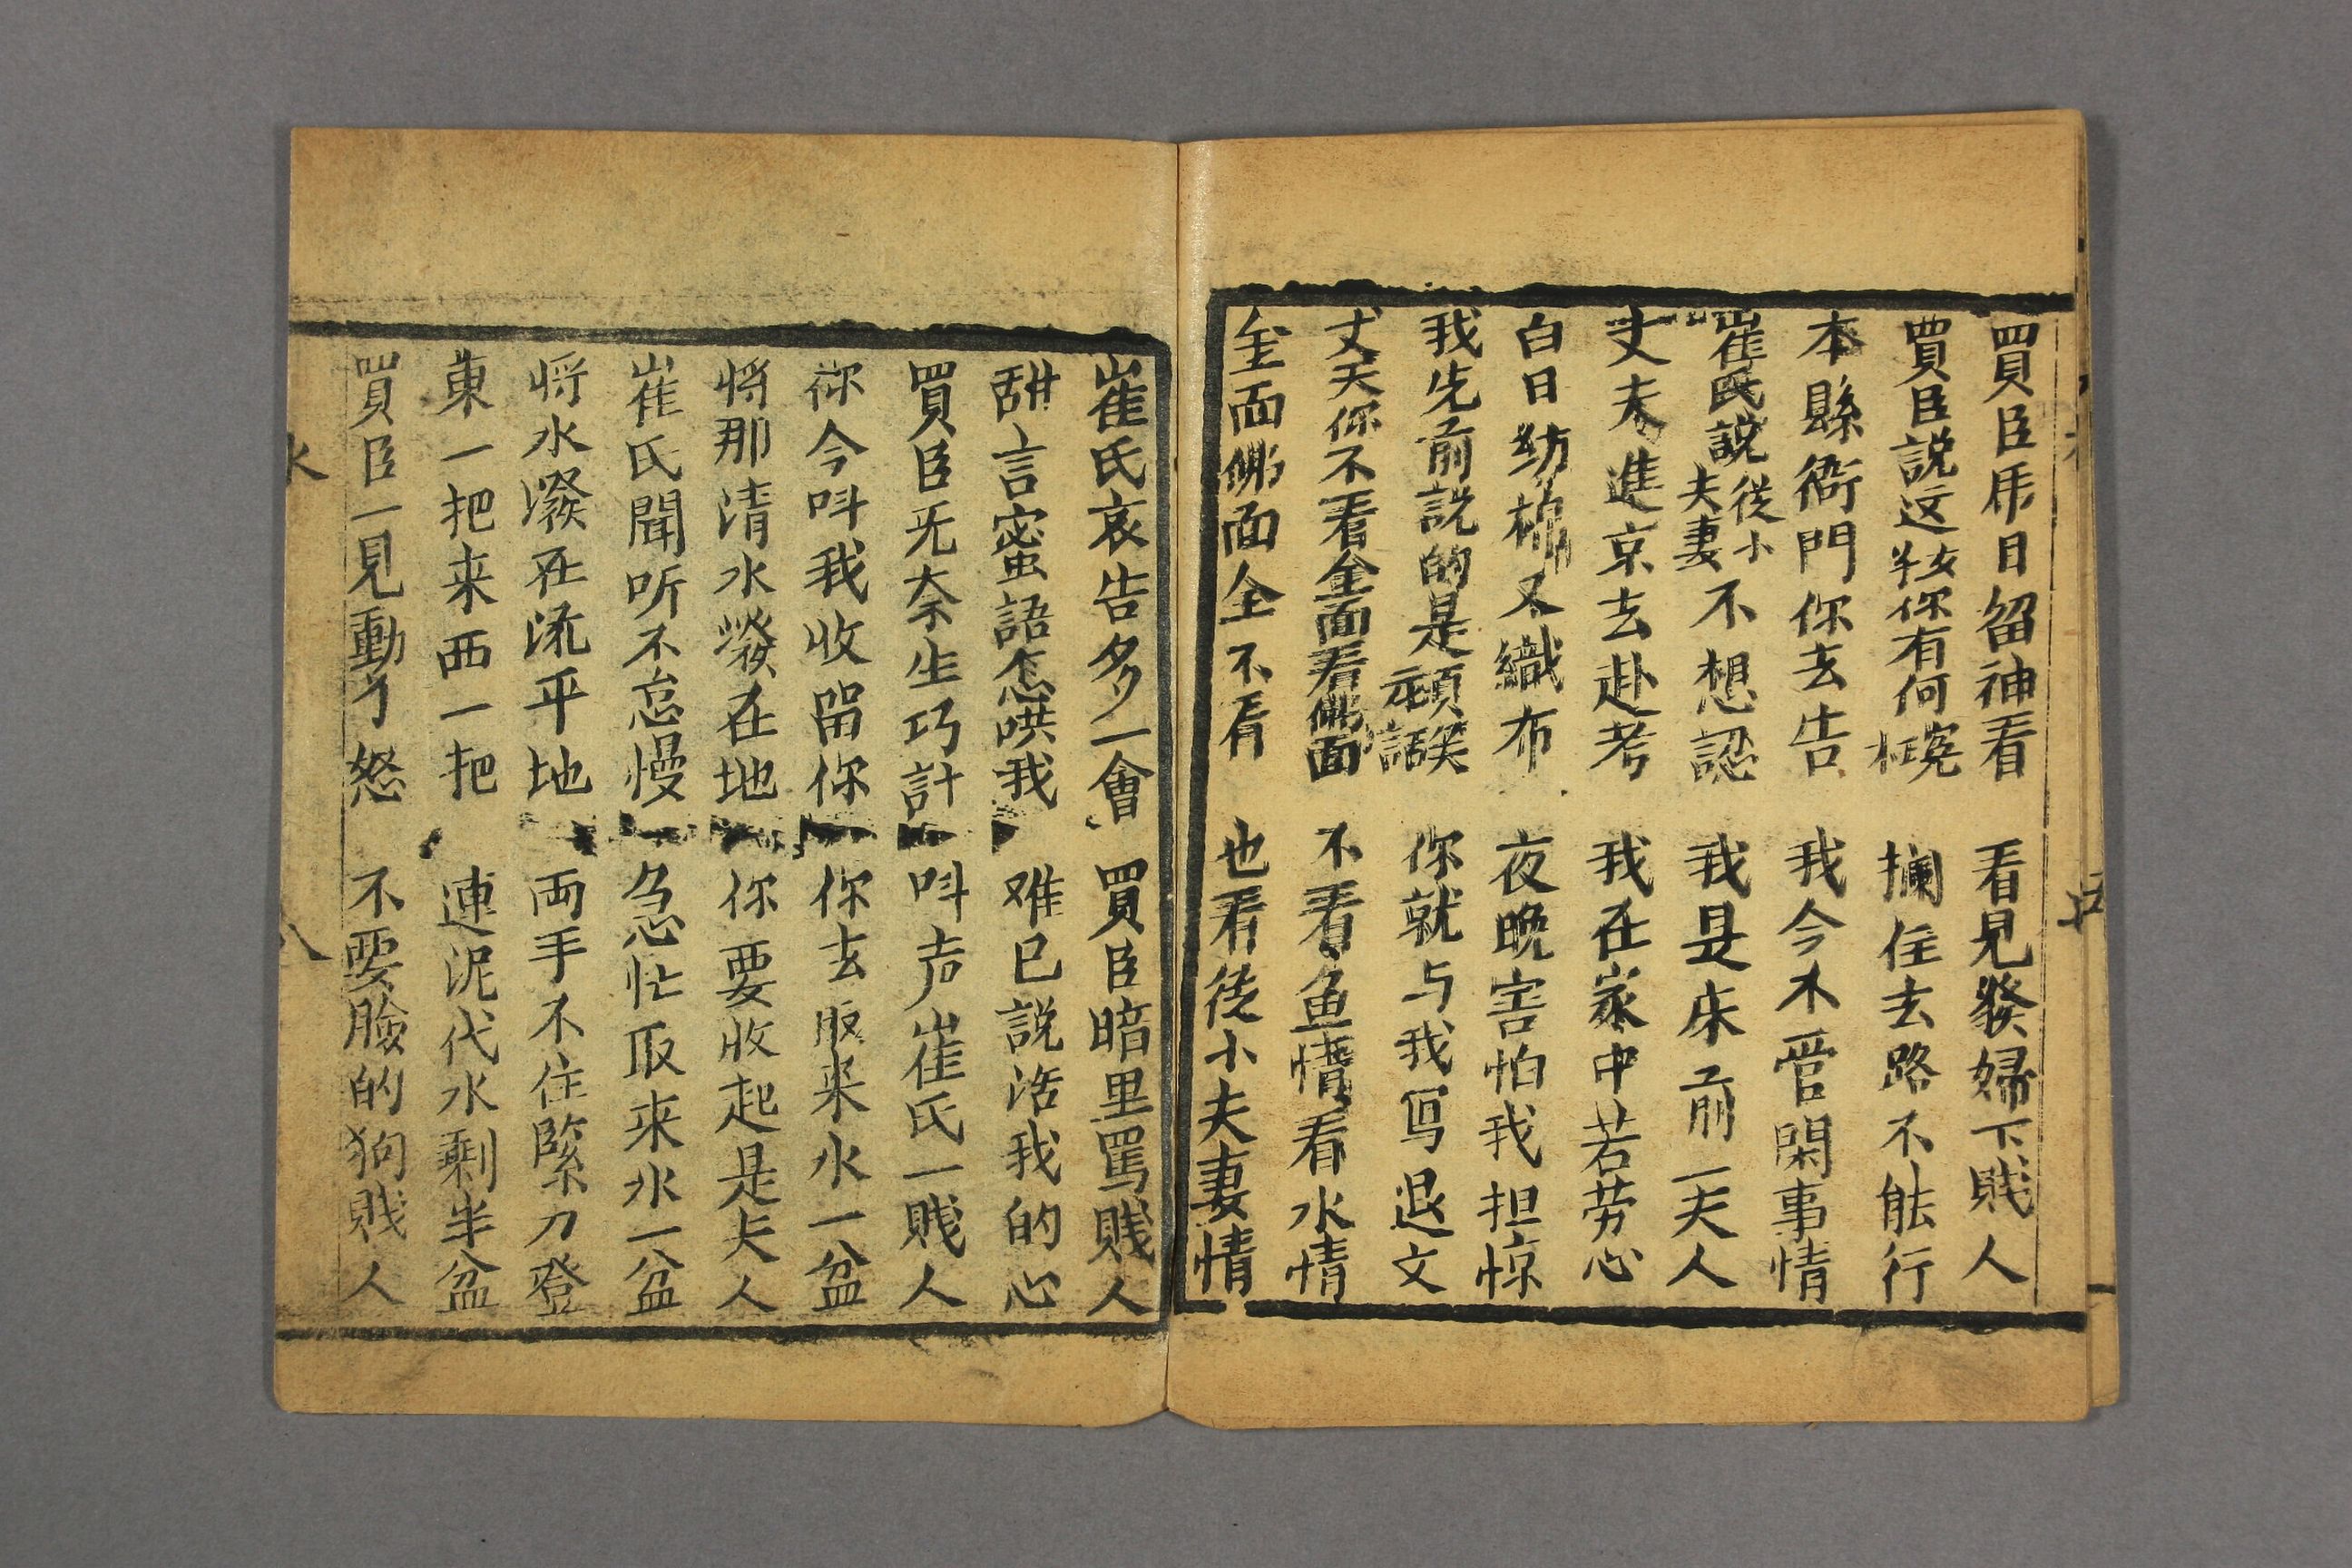 買臣用目留神看 看見發婦下賤人
買臣説这女你有何冤枉 攔住去路不能行
本縣衙門你去告 我今不管閑事情
崔氏説從小夫妻不想認 我是床前一夫人
丈夫進京去赴考 我在家中若劳心
白日紡棉又織布 夜晩害怕我担惊
我先前説的是頑笑話 你就与我写退文
丈夫你不看金面看佛面 不看鱼情看水情
金面佛面全不看 也看從小夫妻情
崔氏哀告多一會 買臣暗里罵賤人
甜言蜜語怎哄我 难已説活我的心
買臣无奈生巧計 叫声崔氏一賤人
你今叫我收留你 你去取来水一盆
将那清水潑在地 你要收起是夫人
崔氏聞听不怠慢 急忙取来水一盆
将水潑在流平地 両手不住緊力登
東一把来西一把 連泥代水剩半盆
買臣一見動了怒 不要臉的狗賤人
水
八